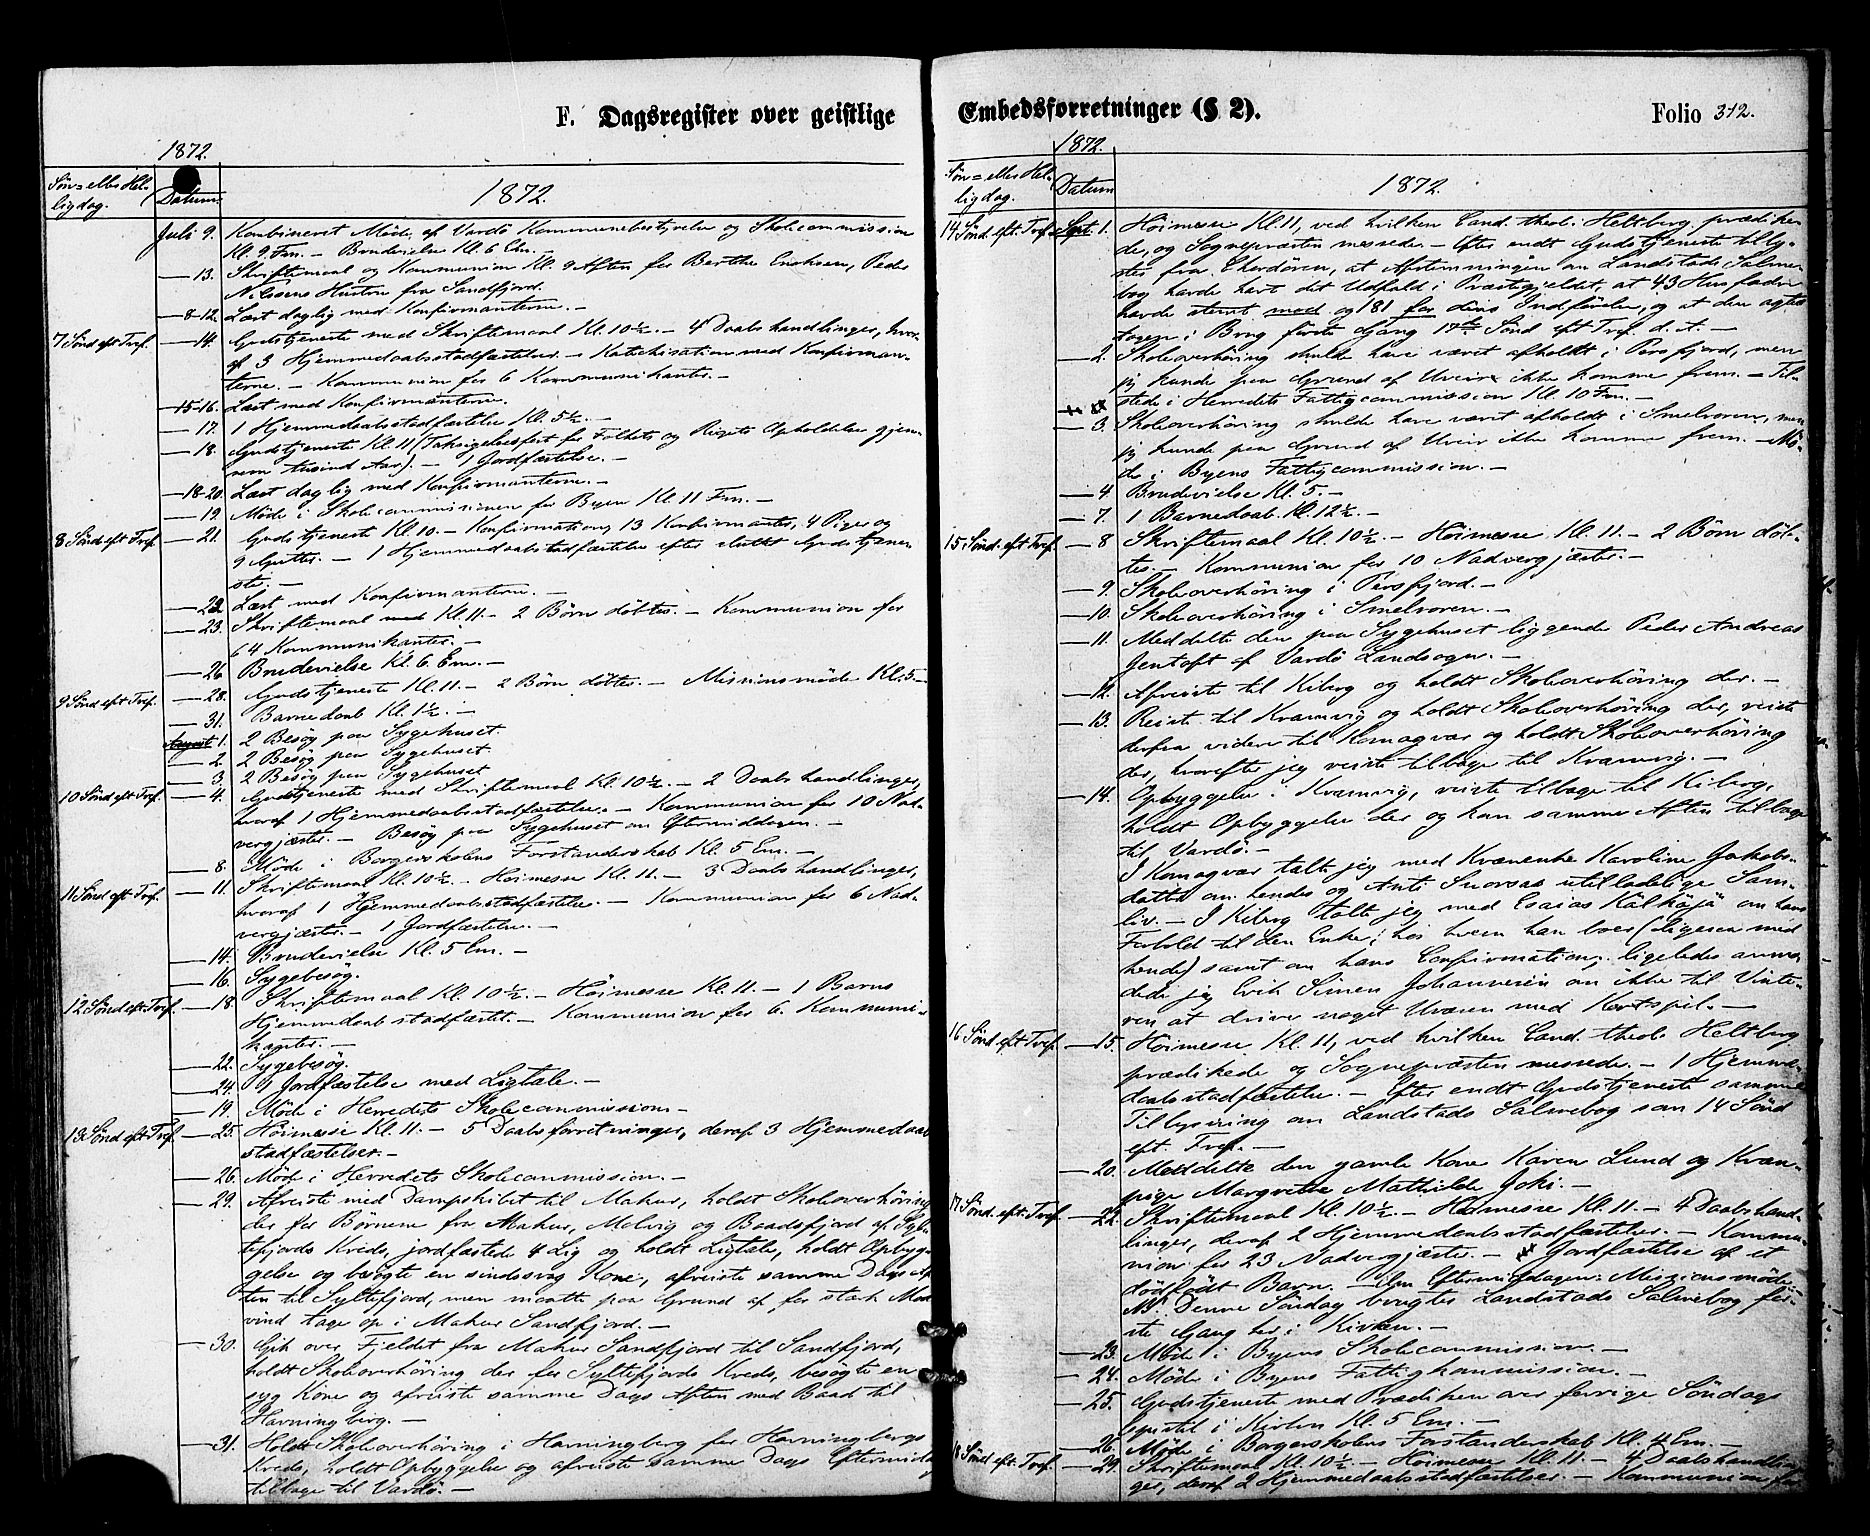 F. Dagsregister over geistlige
1872.
Søn= eller Hel-
ligdag.
Datum.
1872.
Juli 9. Kombineret Møde af Vardø Kommunebestyrelse og Skolecommission
Kl. 9 Fm. – Brudevielse Kl. 6 Em. –
— 13. Skriftemaal og Kommunion Kl. 9 Aften for Berthe Enoksen, Peder
Nilssens Hustru fra Sandfjord.
— 8-12. Læst daglig med Konfirmanterne. –
7 Sønd eft Tref. — 14. Gudstjeneste med Skriftemaal Kl. 10½. – 4 Daabshandlinger, hvor-
af 3 Hjemmedaabsstadfæstelser. – Katechisation med Konfirman-
terne. – Kommunion for 6 Kommunikanter. –
— 15-16. Læst med Konfirmanterne.
— 17. 1 Hjemmedaabsstadfæstelse Kl. 5½. –
— 18. Gudstjeneste Kl. 11 (Taksigelsesfest for Folkets og Rigets Opholdelse gjen-
nem tusind Aar). – 1 Jordfæstelse. –
— 18-20. Læst daglig med Konfirmanterne. –
— 19. Møde i Skolecommissionen for Byen Kl. 11 Fm. –
8 Sønd eft Tref. — 21. Gudstjeneste Kl. 10. – Konfirmation; 13 Konfirmanter, 4 Piger og
9 Gutter. – 1 Hjemmedaabsstadfæstelse efter sluttet Gudstjene-
ste. –
— 22. Læst med Konfirmanterne. –
— 23. Skriftemaal med Kl. 11. – 2 Børn døbtes. – Kommunion for
64 Kommunikanter. –
— 26 Brudevielse Kl. 6 Em. –
9 Sønd eft Tref. — 28. Gudstjeneste Kl. 11. – 2 Børn døbtes. – Missionsmøde Kl. 5. –
— 31. Barnedaab Kl. 1½. –
August 1. 2 Besøg paa Sygehuset.
— 2. 2 Besøg paa Sygehuset
— 3 2 Besøg paa Sygehuset
10 Sønd eft Tref. — 4. Gudstjeneste med Skriftemaal Kl. 10½. – 2 Daabshandlinger,
hvoraf 1 Hjemmedaabsstadfæstelse. – Kommunion for 10 Nad-
vergjæster. – Besøg paa Sygehuset om Eftermiddagen. –
— 8. Møde i Borgerskolens Forstanderskab Kl. 5 Em. –
11 Sønd eft Tref. — 11. Skriftemaal Kl. 10½. – Høimesse Kl. 11. – 3 Daabshandlinger,
hvoraf 1 Hjemmedaabsstadfæstelse. – Kommunion for 6 Nad-
vergjæster. – 1 Jordfæstelse. –
— 14. Brudevielse Kl. 5 Em. –
— 16. Sygebesøg.
12 Sønd eft. Tref. — 18. Skriftemaal Kl. 10½. – Høimesse Kl. 11. – 1 Barns
Hjemmedaab stadfæstet. – Kommunion for 6 Kommuni-
kanter. –
— 22. Sygebesøg.
— 24. 1 Jordfæstelse med Ligtale. –
— 19. Møde i Herredets Skolecommission –
13 Sønd eft Tref. — 25. Høimesse Kl. 11. – 5 Daabsforretninger, deraf 3 Hjemmedaabs-
stadfæstelser. –
— 26. Møde i Herredets Skolecommission. –
— 29. Afreiste med Dampskibet til Makur, holdt Skoleoverhøring
der for Børnene fra Makur, Molvig og Baadsfjord af Sylte-
fjords Kreds, jordfæstede 4 Lig og holdt Ligtale, holdt Opbyg-
gelse og besøgte en sindssvag Kone, afreiste samme Dags Af-
ten til Syltefjord, men maatte paa Grund af for stærk Mod-
vind tage op i Makur Sandfjord. –
— 30. Gik over Fjeldet fra Makur Sandfjord til Sandfjord,
holdt Skoleoverhøring der for Syltefjords Kreds, besøgte en
syg Kone og afreiste samme Dags Aften med Baad til
Havningberg. –
— 31. Holdt Skoleoverhøring i Havningberg for Havningbergs
Kreds, holdt Opbyggelse og afreiste samme Dags Eftermiddag
tilbage til Vardø. –
Embedsforretninger (§ 2).
Folio 312.
1872.
Søn= eller Hel-
ligdag.
Datum
1872.
14 Sønd. eft. Tref. Sept. 1. Høimesse Kl. 11, ved hvilken Cand. theol. Heltberg prædike-
de, og Sognepræsten messede. – Efter endt Gudstjeneste tilly-
stes fra Chordøren, at Afstemningen om Landstads Salme-
bog havde havt det Udfald i Præstegjeldet, at 43 Husfædre
havde stemt mod og 181 for dens Indførelse, og at den agtes
tagen i Brug første Gang 17de Sønd eft Tref. d. A. –
— 2. Skoleoverhøring skulde have været afholdt i Persfjord, men
jeg kunde paa Grund af Uveir ikke komme frem. – Til-
stede i Herredets Fattigcommission Kl. 10 Fm. –
— 3. Skoleoverhøring skulde have været afholdt i Smelroren, men
jeg kunde paa Grund af Uveir ikke komme frem. – Mø-
de i Byens Fattigcommission. –
— 4. Brudevielse Kl. 5. –
— 7. 1 Barnedaab Kl. 12½. –
15 Sønd. eft Tref. — 8 Skriftemaal Kl. 10½. – Høimesse Kl. 11. – 2 Børn døb-
tes. – Kommunion for 10 Nadvergjæster. –
— 9. Skoleoverhøring i Persfjord. –
— 10. Skoleoverhøring i Smelroren. –
— 11. Meddelte den paa Sygehuset liggende Peder Andreas
Jentoft af Vardø Landsogn. –
— 12. Afreiste til Kiberg og holdt Skoleoverhøring der. –
— 13. Reiste til Kramvig og holdt Skoleoverhøring der, reiste
derfra videre til Komagvær og holdt Skoleoverhøring
der, hvorefter jeg reiste tilbage til Kramvig. –
— 14. Opbyggelse i Kramvig, reiste tilbage til Kiberg,
holdt Opbyggelse der og kom samme Aften tilbage
til Vardø. –
I Komagvær talte jeg med Kvænenke Karoline Jakobs-
datter om hendes og Anti Suorsas utilladelige Sam-
liv. – I Kiberg talte jeg med Esaias Kälkäjä om hans
Forhold til den Enke, hos hvem han boer (ligesaa med
hende) samt om hans Confirmation; ligeledes anmo-
dede jeg Erik Simen Johannesen om ikke til Vinte-
ren at drive noget Uvæsen med Kortspil. –
16 Sønd. eft Tref. — 15. Høimesse Kl. 11, ved hvilken Cand. theol. Heltberg
prædikede og Sognepræsten messede. – 1 Hjemme-
daabsstadfæstelse. – Efter endt Gudstjeneste samme
Tillysning om Landstads Salmebog som 14 Sønd
eft Tref. –
— 20. Meddelte den gamle Kone Karen Lund og Kvæn-
pige Margrethe Mathilde Joki. –
17 Sønd. eft. Tref. — 22. Skriftemaal Kl. 10½. – Høimesse Kl. 11. – 4 Daabshand-
linger, deraf 2 Hjemmedaabsstadfæstelser. – Kommu-
nion for 23 Nadvergjæster. – Jordfæstelse af et
dødfødt Barn. – Om Eftermiddagen: Missionsmøde. –
NB. Denne Søndag brugtes Landstads Salmebog før-
ste Gang her i Kirken. –
— 23. Møde i Byens Skolecommission. –
— 24. Møde i Byens Fattigkommission. –
— 25. Gudstjeneste med Prædiken over forrige Søndags
Epistel i Kirken Kl. 5 Em. –
— 26. Møde i Borgerskolens Forstanderskab Kl. 4 Em. –
18 Sønd eft Tref. — 29. Skriftemaal Kl. 10½. – Høimesse Kl. 11. – 4 Daabshandlin-
ger, deraf 2 Hjemmedaabsstadfæstelser. – Kommunion for